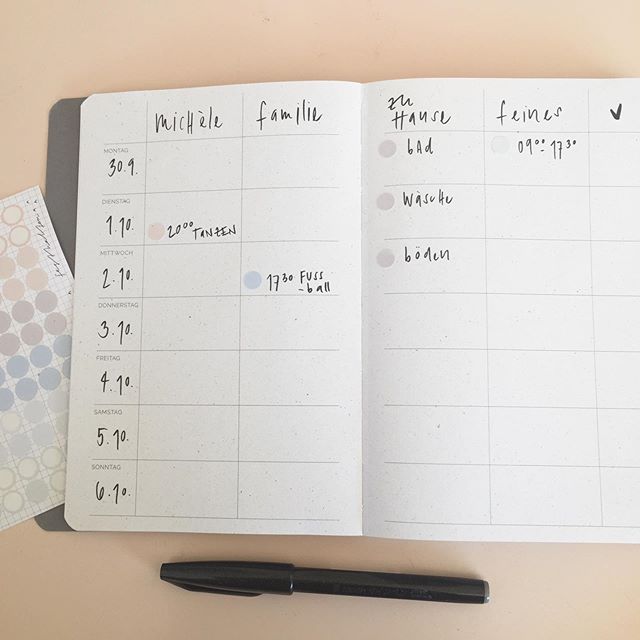 michèle
familie
zu
Hause
feines
MONTAG
30.9.
bad
09⁰⁰ 17³⁰
DIENSTAG
1.10.
20⁰⁰ Tanzen
Wäsche
MITTWOCH
2.10.
17³⁰ Fuss
-ball
böden
DONNERSTAG
3.10.
FREITAG
4.10.
SAMSTAG
5.10.
SONNTAG
6.10.